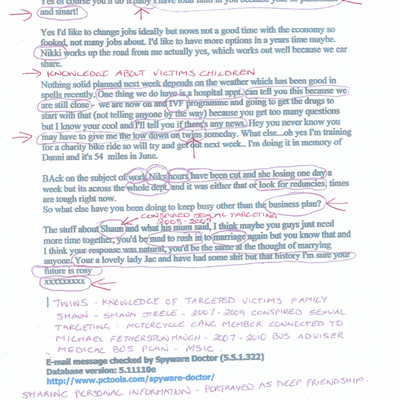 Yes of course you'll do it baby I have total faith in you because your so
and smart!
Yes I'd like to change jobs ideally but nows not a good time with the economy so
fooked, not many jobs about. I'd like to have more options in a years time maybe.
Nikki works up the road from me actually yes, which works out well because we car
share.
KNOWLEDGE ABOUT VICTIMS CHILDREN
Nothing solid planned next week depends on the weather which has been good in
spells recently. One thing we do have is a hospital appt. can tell you this because we
are still close - we are now on and IVF programme and going to get the drugs to
start with that (not telling anyone by the way) because you get too many questions
but I know your cool and I'll tell you if there's any news. Hey you never know you
may have to give me the low down on twins someday. What else...oh yes I'm training
for a charity bike ride so will try and get out next week.. I'm doing it in memory of
Danni and it's 54 miles in June.
BAck on the subject of work Niks hours have been cut and she losing one day a
week but its across the whole dept, and it was either that or look for reduncies. times
are tough right now.
So what else have you been doing to keep busy other than the business plan?
CONSPIRED SEXUAL TARGETING
The stuff about Shaun and what his mum said, I think maybe you guys just need
more time together, you'd be mad to rush in to marriage again but you know that and
I think your response was natural, you'd be the same at the thought of marrying
anyone. Your a lovely lady Jac and have had some shit but that history I'm sure your
future is rosy
xxxxxxxxx
TWINS - KNOWLEDGE OF TARGETED VICTIMS FAMILY
SHAUN - SHAUN STEELE - 2007 - 2009 CONSPIRED SEXUAL
TARGETING - MOTORCYCLE GANG MEMBER CONNECTED TO
MICHAEL FETHERSTONHAUGH - 2007 - 2010 BUS ADVISER
MEDICAL BUS PLAN - MSIC
E-mail message checked by Spyware Doctor (5.5.1.322)
Database version: 5.11110e
http://www.pctools.com/spyware-doctor/
SHARING PERSONAL INFORMATION - PORTRAYED AS DEEP FRIENDSHIP.